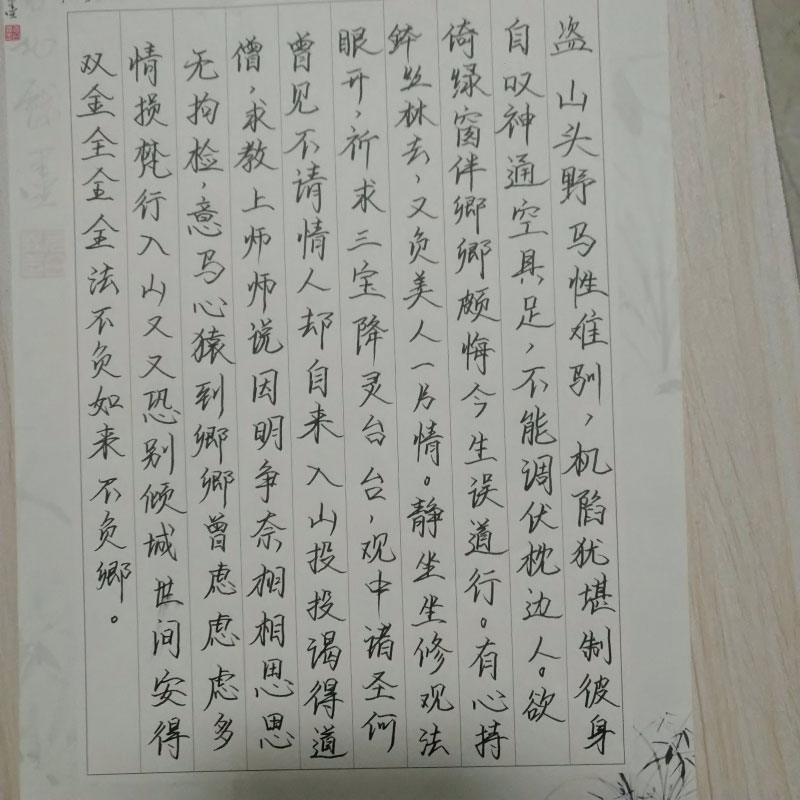 盗山头野马性难驯，机陷犹堪制彼身
自叹神通空具足，不能调伏枕边人。欲
倚绿窗伴卿卿颇悔今生误道行。有心持
钵丛林去，又负美人一片情。静坐坐修观法
眼开，祈求三宝降灵台台，观中诸圣何
曾见不请情人却自来入山投投谒得道
僧，求教上师师说因明争奈相相思思
无拘检，意马心猿到卿卿曾虑虑虑多
情损梵行入山又又恐别倾城世间安得
双全全全全法不负如来不负卿。